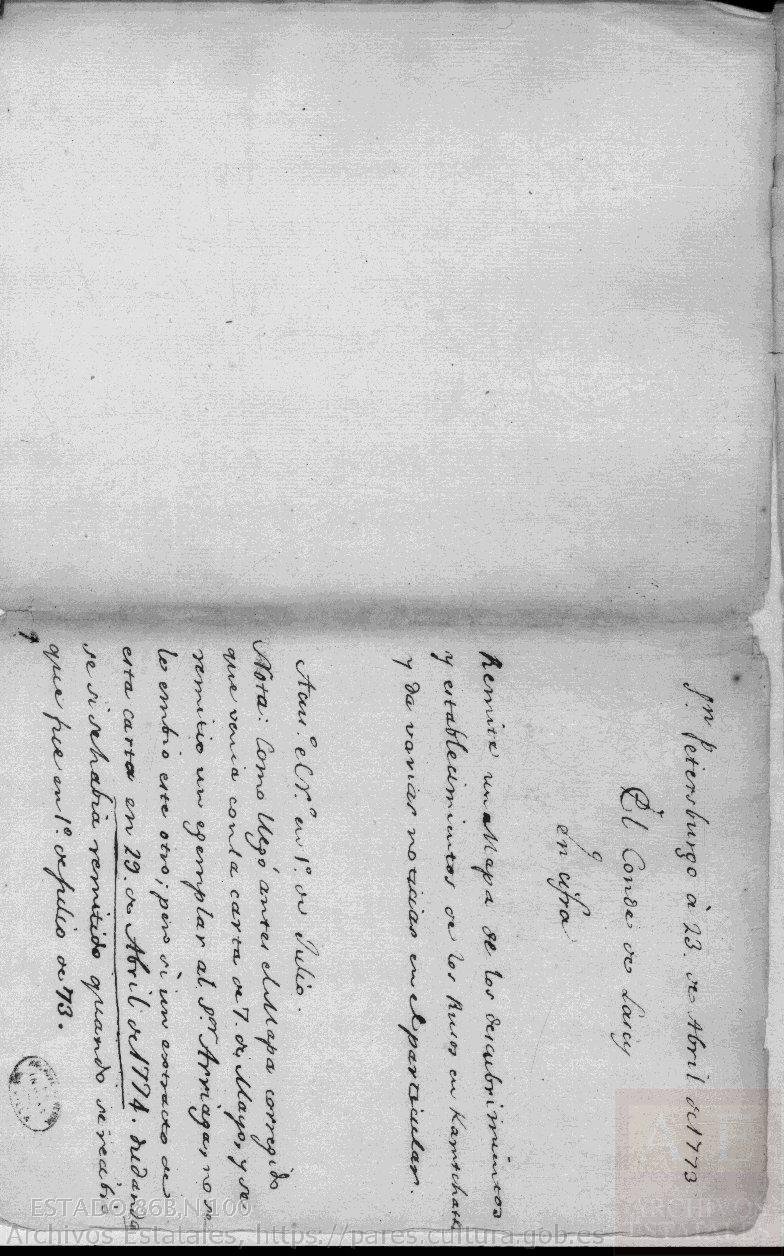 Sn. Petersburgo à 23. de Abril de 1773
El Conde de Lascy
En cifra
Remite un Mapa de los descubrimientos
y establecimientos de los Rusos en Kamtchatk
y da varias noticias en el particular.
en 1.º de Julio.
Nota: Como llegó antes el Mapa corregido
que venia con la carta de 7. de Mayo, y se
remitió un egemplar al Sr. Arriaga, no se
le embio este otro; pero si un extracto de
esta carta en 29. de Abril de 1774. dudando
se si se habia remitido quando se recibió
que fue en 1.º de Julio de 73.
ESTADO,86B,N.100
Archivos Estatales, https://pares.cultura.gob.es
AE
ARCHIVOS
ESTATALES